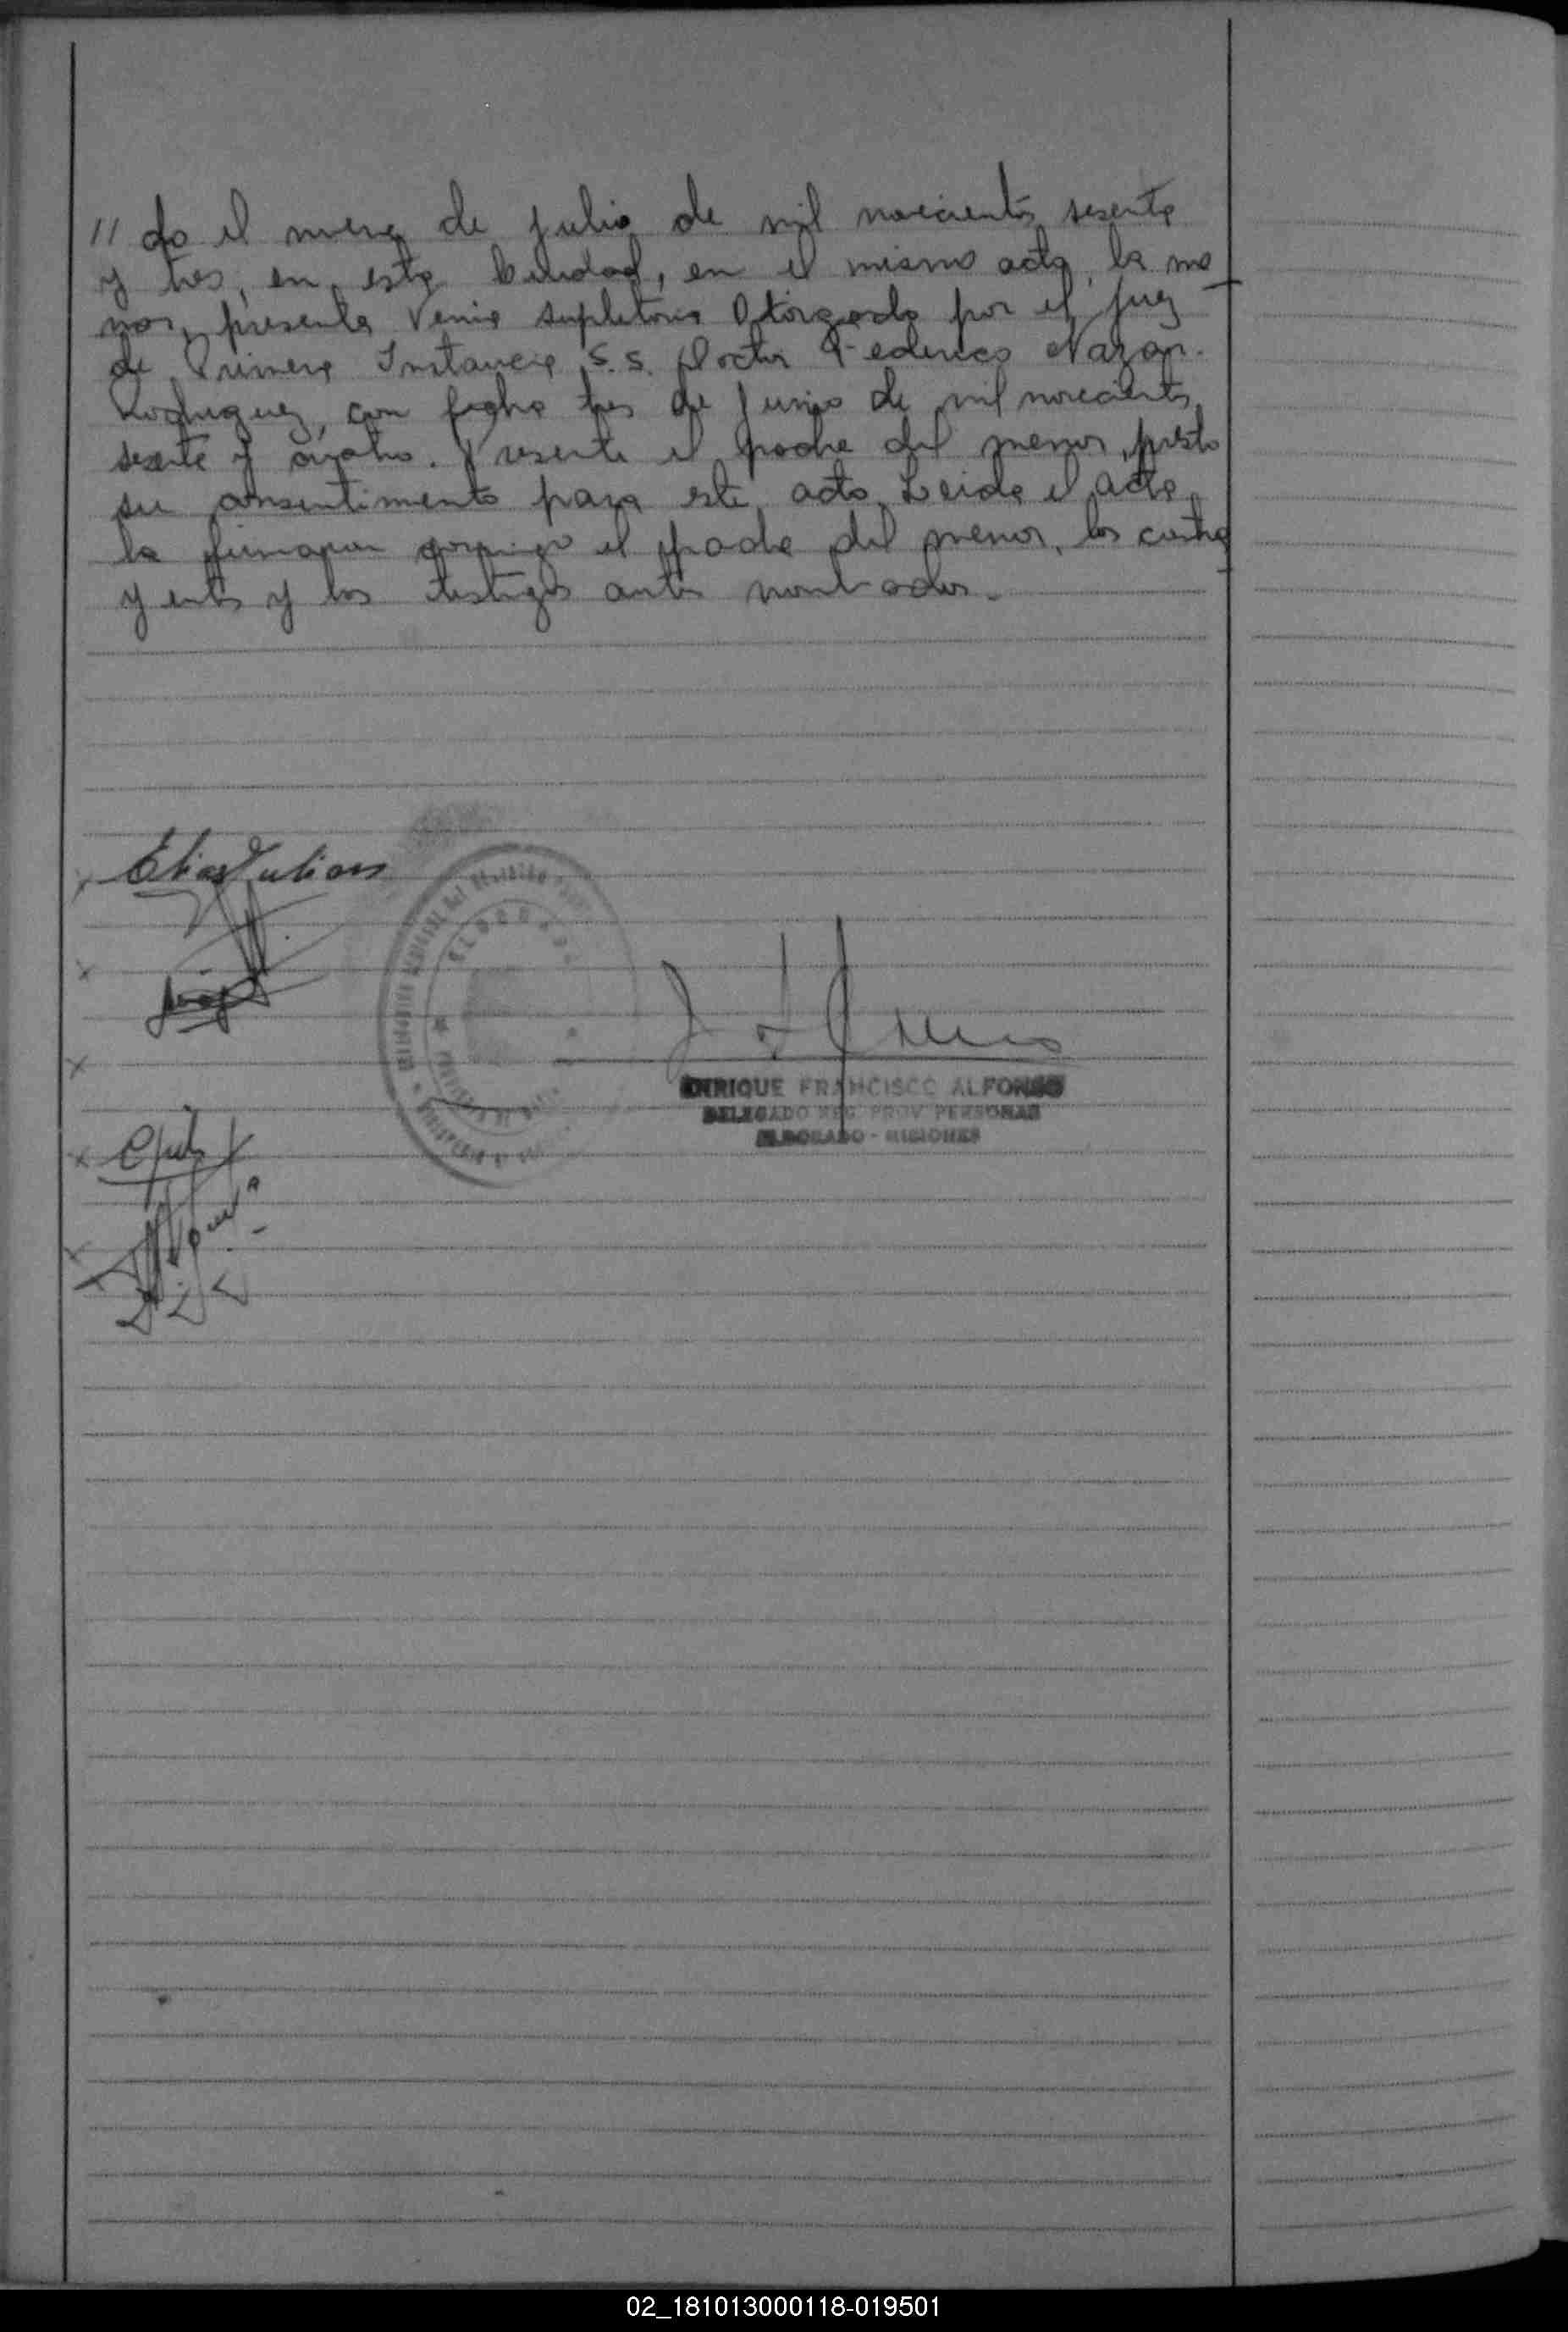 // do el nueve de julio de mil novecientos sesenta
y tres, en esta localidad, en el mismo acto, la me
nor, presenta Venia supletoria Otorgada por el Juez
de Primera Instancia S.S. Doctor Federico Nazar
Rodriguez, con fecha tres de Junio de mil novecientos
sesenta y cuatro. Presente el padre del menor, presto
su consentimento para este acto. Leida el acta
la firmaron conmigo el padre del menor, los contra
yentes y los testigos antes nombrados.-
Elias
ELDORADO
ENRIQUE FRANCISCO ALFONSO
DELEGADO REG. PROV. PERSONAS
ELDORADO - MISIONES
02_181013000118-019501